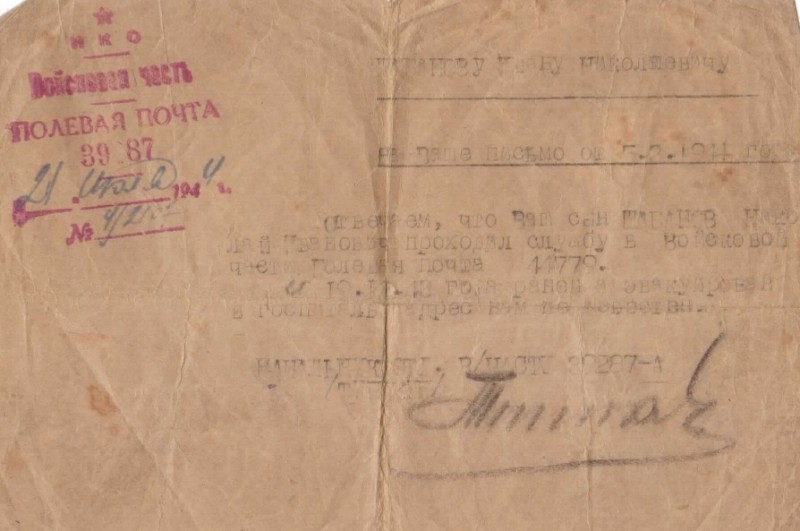 НКО
Войсковая часть
ПОЛЕВАЯ ПОЧТА
39 87
21 июля 1944 г.
№
ШАГАНОВУ Ивану Николаевичу
на Ваше письмо от 1944 года
Отвечаем, что Ваш сын ШАГАНОВ Нико
лай Иванович проходил службу в войсковой
части Полевая почта 44779.
года ранен и эвакуирован
в госпиталь адрес нам не известен.
В/ЧАСТИ